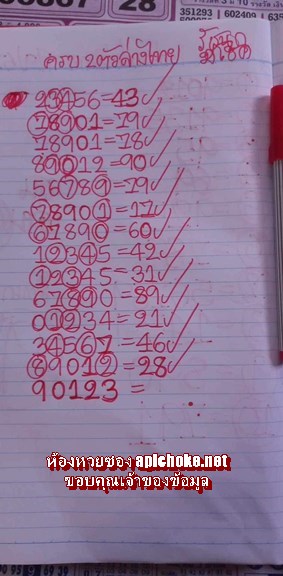 28
351293 | 602409 | 635
ครบ 2ตัวล่างไทย
23456=43✓
78901=79✓
78901=78✓
89012=90✓
56789=79✓
78901=17✓
67890=60✓
12345=42✓
12345=31✓
67890=89✓
01234=21✓
34567=46✓
89012=28✓
90123=
ห้องหวยซอง apichoke.net
ขอบคุณเจ้าของข้อมูล